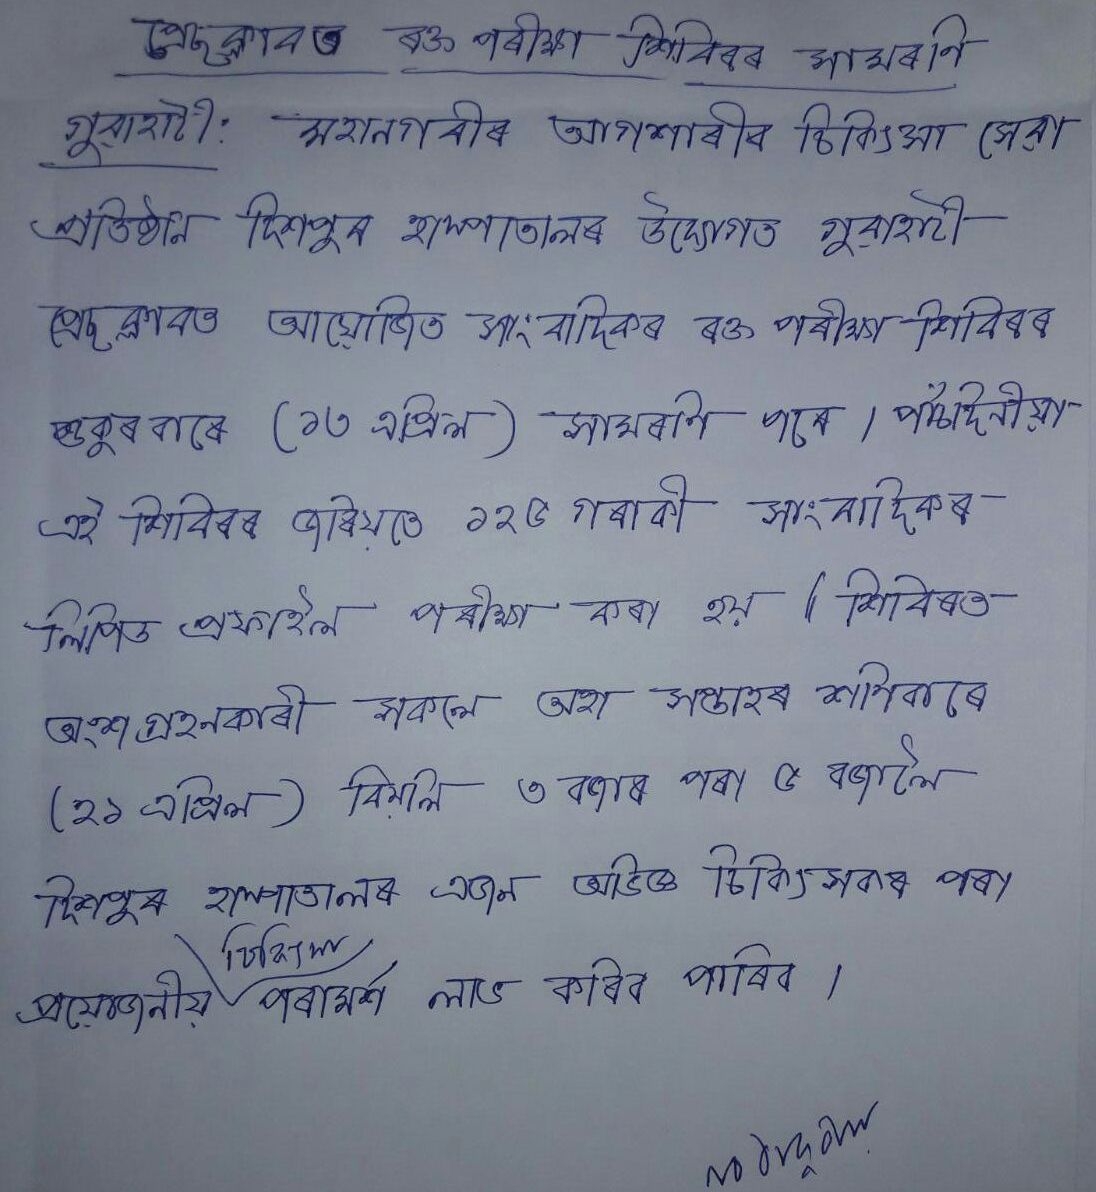 প্ৰেছ ক্লাবত ৰক্ত পৰীক্ষা শিবিৰৰ সামৰণি
গুৱাহাটী: মহানগৰীৰ আগশাৰীৰ চিকিৎসা সেৱা
প্ৰতিষ্ঠান দিশপুৰ হাস্পতালৰ উদ্যোগত গুৱাহাটী
প্ৰেছ ক্লাবত আয়োজিত সাংবাদিকৰ ৰক্ত পৰীক্ষা শিবিৰৰ
শুকুৰবাৰে (১৩ এপ্ৰিল) সামৰণি পৰে । পাঁচদিনীয়া
এই শিবিৰৰ জৰিয়তে ১২৫ গৰাকী সাংবাদিকৰ
লিপিড প্ৰফাইল পৰীক্ষা কৰা হয় । শিবিৰত
অংশগ্ৰহনকাৰী সকলে অহা সপ্তাহৰ শনিবাৰে
(২১ এপ্ৰিল) বিয়লি ৩ বজাৰ পৰা ৫ বজালৈ
দিশপুৰ হাস্পতালৰ এজন অভিজ্ঞ চিকিৎসকৰ পৰা
চিকিৎসা
প্ৰয়োজনীয় পৰামৰ্শ লাভ কৰিব পাৰিব ।